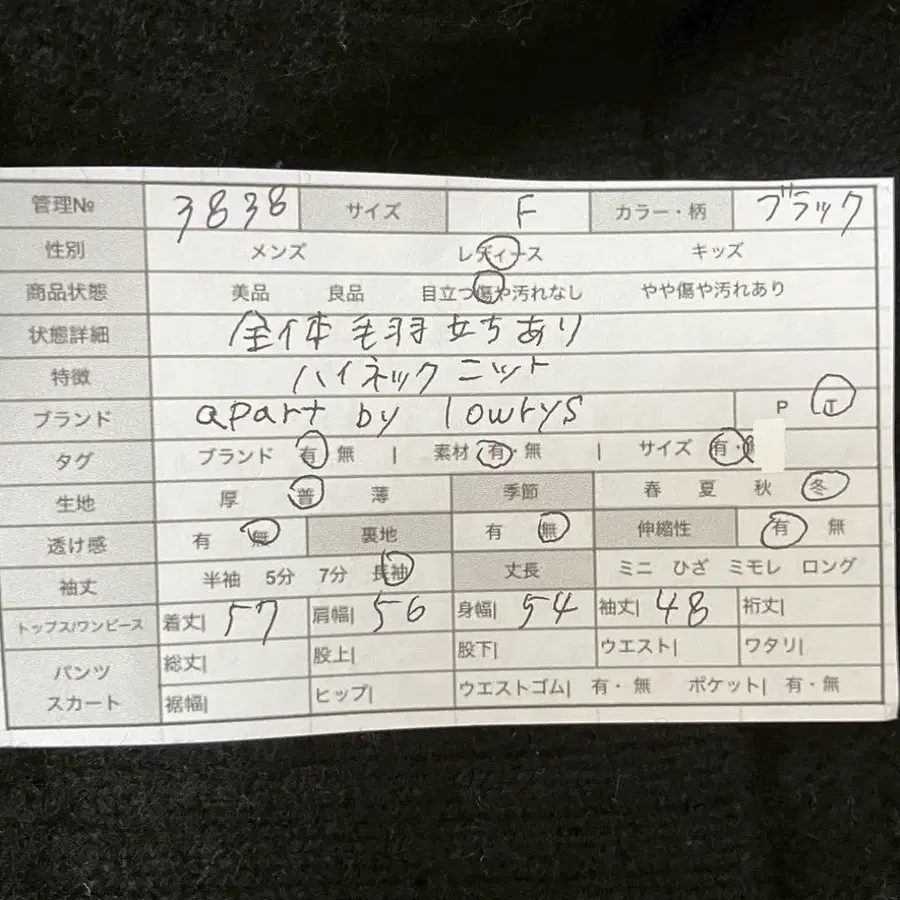 管理№ 3838 サイズ F カラー・柄 ブラック
性別 メンズ レディース キッズ
商品状態 美品 良品 目立つ傷や汚れなし やや傷や汚れあり
状態詳細 全体毛羽立ちあり
特徴 ハイネックニット
ブランド apart by lowrys P T
タグ ブランド 有 無 | 素材 有・無 | サイズ 有・
生地 厚 普 薄 季節 春 夏 秋 冬
透け感 有 無 裏地 有 無 伸縮性 有 無
袖丈 半袖 5分 7分 長袖 丈長 ミニ ひざ ミモレ ロング
トップス/ワンピース 着丈| 57 肩幅| 56 身幅| 54 袖丈| 48 裄丈|
パンツ スカート 総丈| 股上| 股下| ウエスト| ワタリ|
裾幅| ヒップ| ウエストゴム| 有・無 ポケット| 有・無